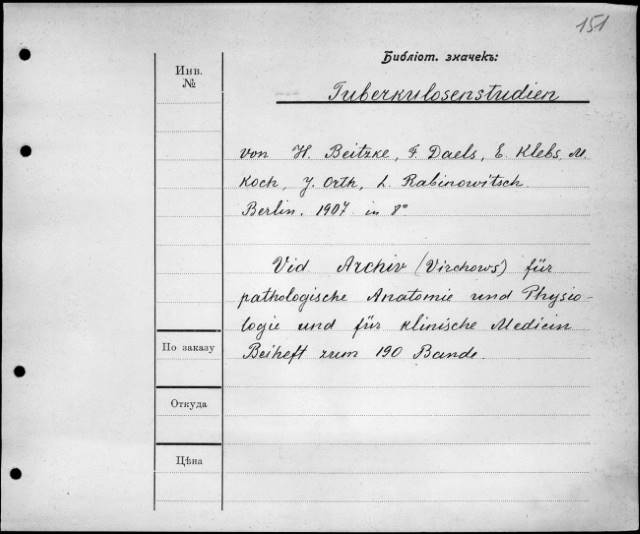 151
Библіот. значекъ:
Инв.
№
Tuberkulosenstudien
von H. Beitzke, F. Daels, E. Klebs, M.
Koch, J. Orth, L. Rabinowitsch.
Berlin. 1907 in 8°
Vid Archiv (Virchows) für
pathologische Anatomie und Physio-
logie und für klinische Medicin
Beiheft zum 190 Bande.
По заказу
Откуда
Цѣна